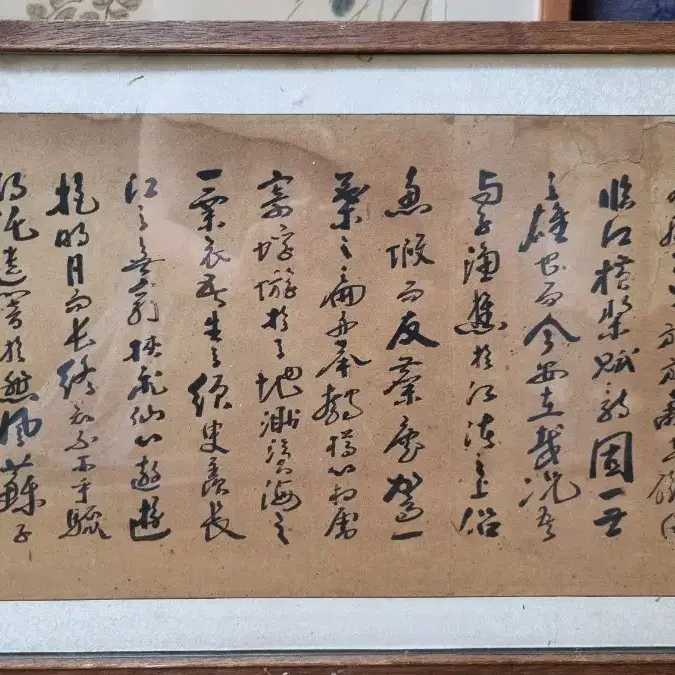 臨江橫槊賦詩固一世
之雄也而今安在哉況吾
与子漁樵於江渚之上侶
魚蝦而友麋鹿駕一
葉之扁舟舉匏樽以相属
寄蜉蝣於天地渺滄海之
一粟哀吾生之須臾羨長
江之無窮挾飛仙以遨遊
抱明月而長終知不可乎驟
得託遺響於悲風蘇子